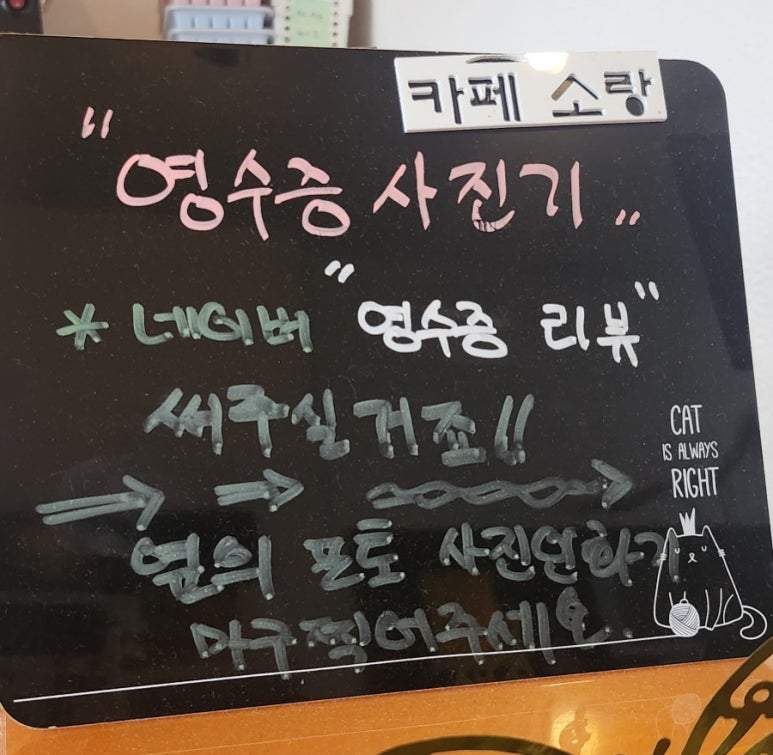 카페 소랑
"영수증 사진기"
* 네이버 "영수증 리뷰"
써주실거죠!!
옆의 포토 사진인화기
마구찍어주세요.
CAT
IS ALWAYS
RIGHT